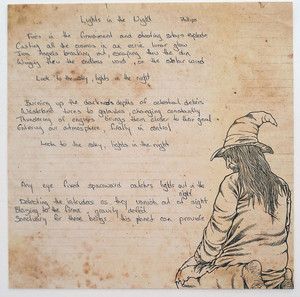 Lights in the Night
Fires in the firmament and shooting stars explode
Casting all the cosmos in an eerie lunar glow
Iron Angels breaking out, escaping thru the sun
Winging thru the endless void, on the stellar wind
Look to the sky, lights in the night
Burning up the darkened depths of celestial debris
Wasteland turns to galaxies changing constantly
Thundering of engines brings them closer to their goal
Entering our atmosphere, finally in control
Look to the sky, lights in the night
Any eye fixed spaceward catches lights out in the
night
Detecting the intruders as they vanish out of sight
Blazing to the fiery, gravity defied
Sanctuary for these beings this planet can provide